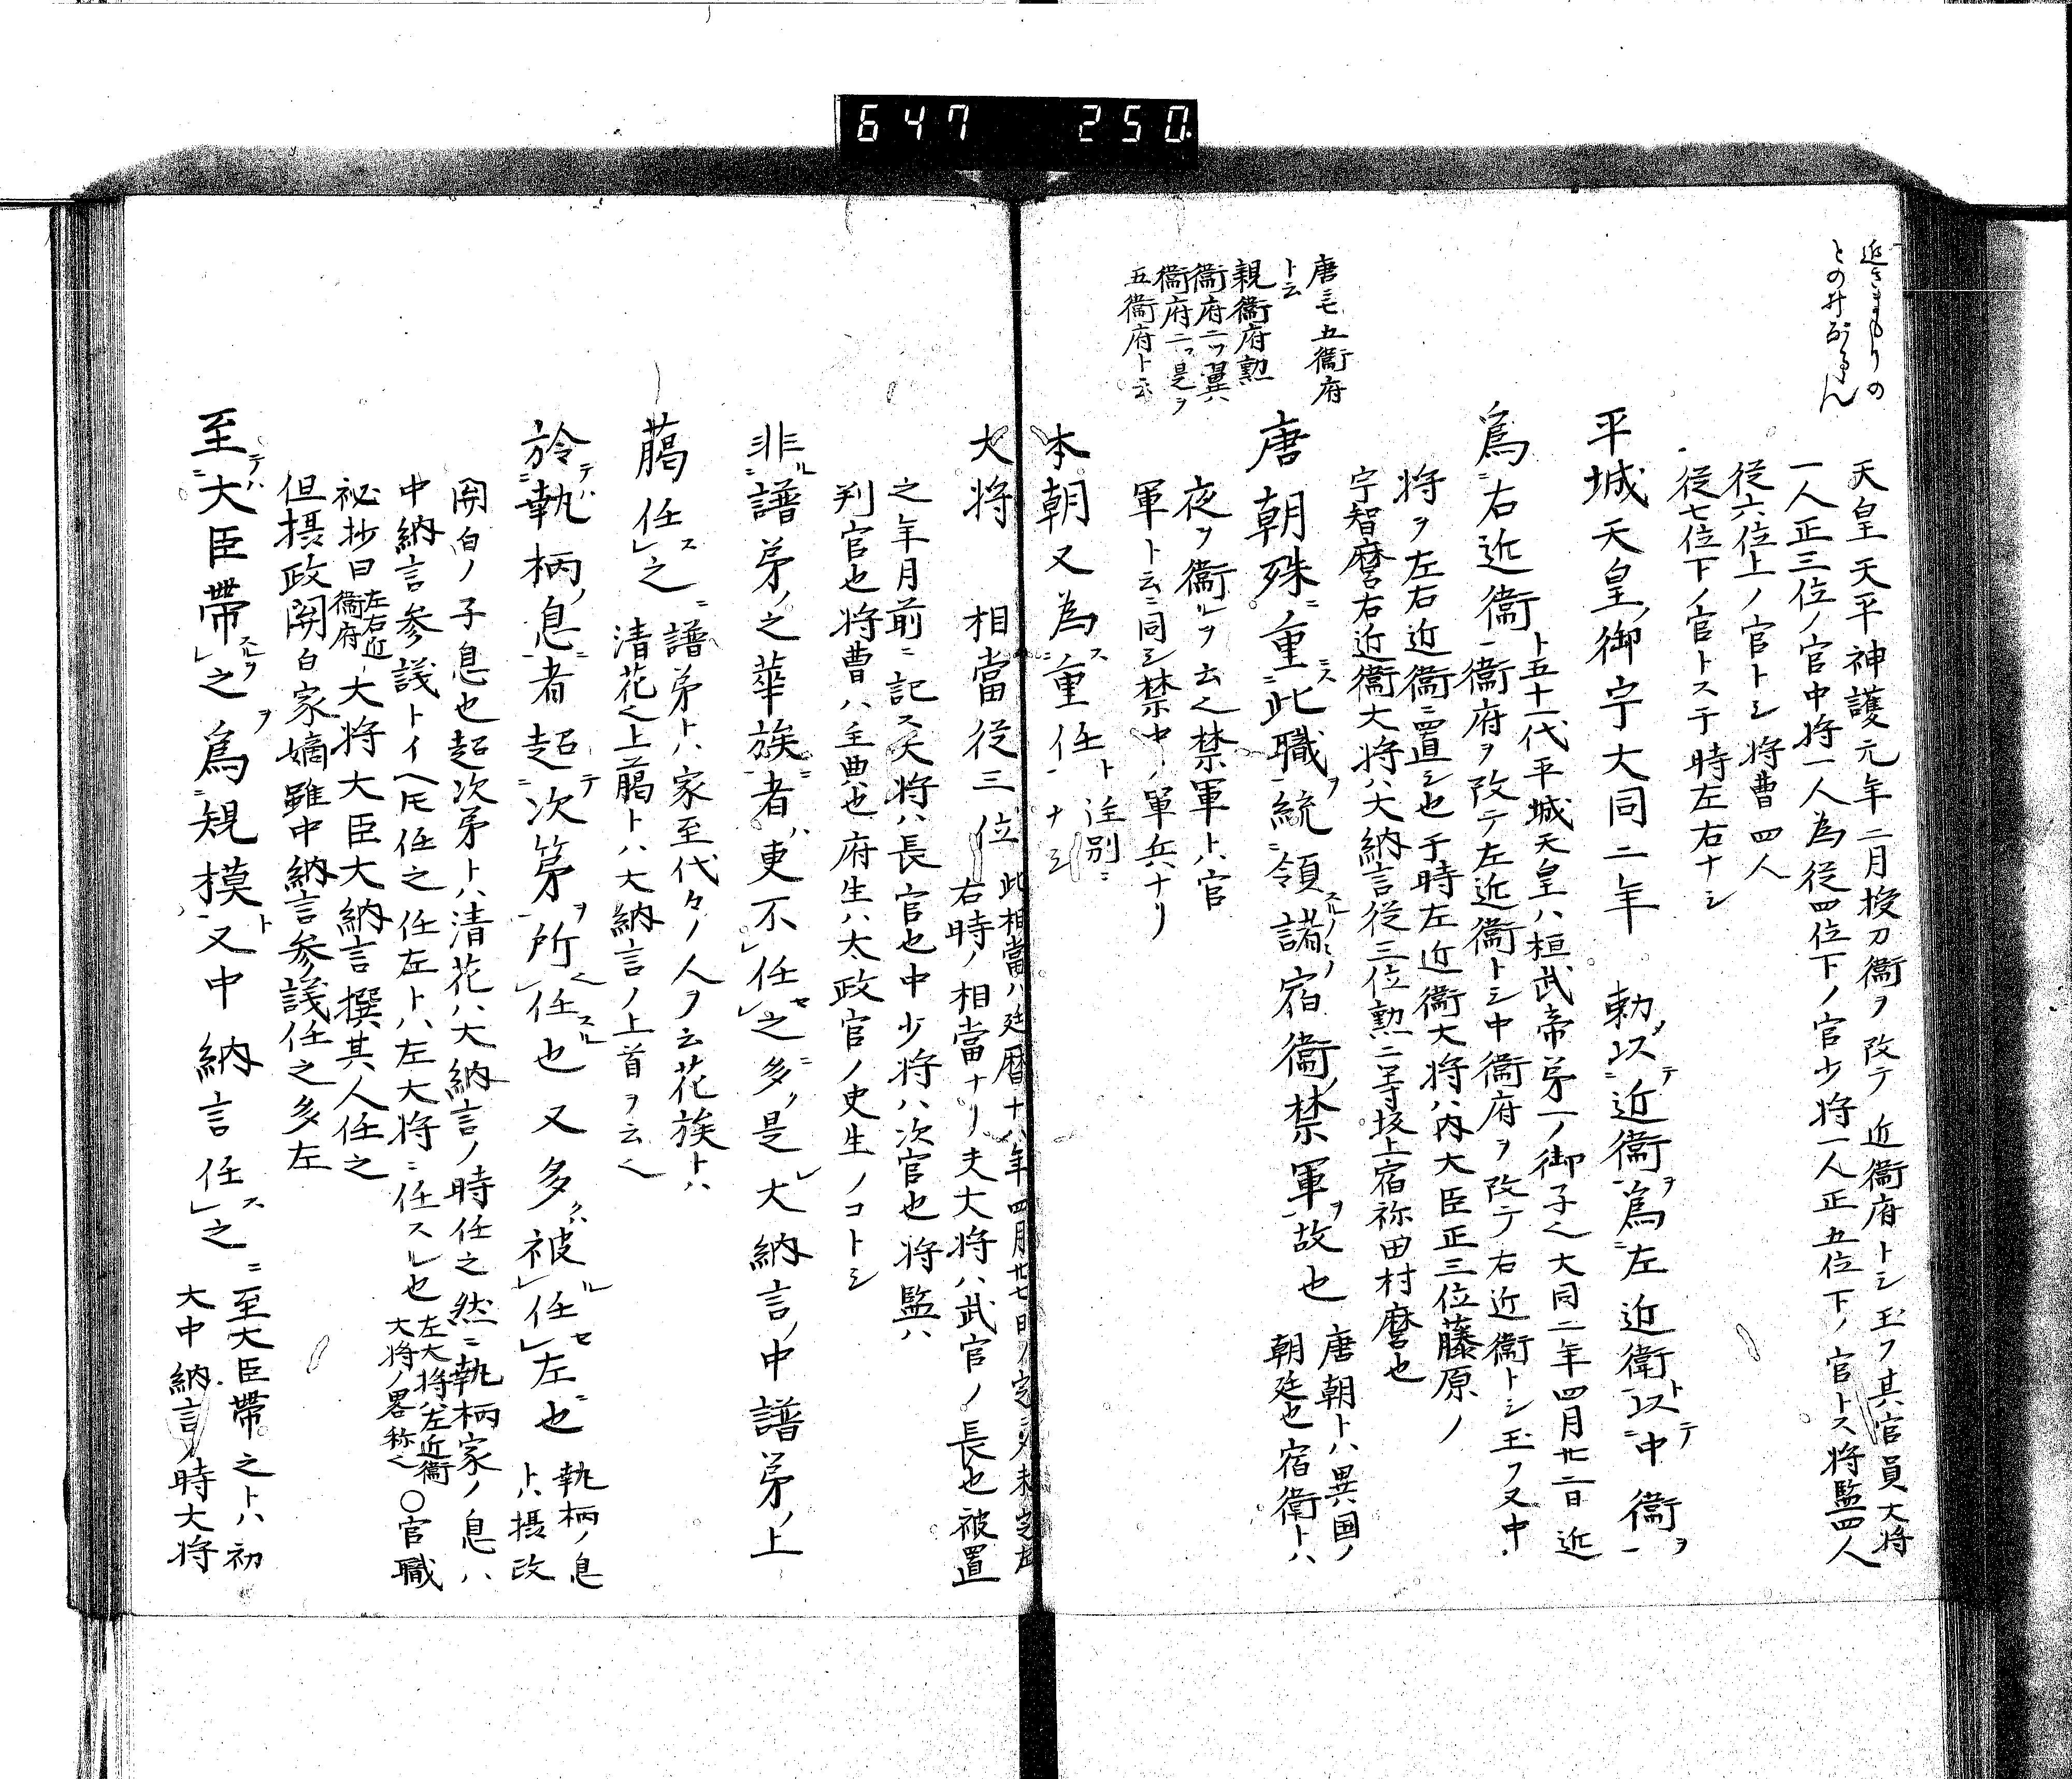 647 250
近きまもりの
とのみざうらん
天皇天平神護元年二月授刀衞ヲ改テ近衞府トシ玉フ其官員大将
一人正三位ノ官中将一人為従四位下ノ官少将一人正五位下ノ官トス将監四人
従六位上ノ官トシ将曹四人
従七位下ノ官トス于時左右ナシ
平城天皇ノ御宇大同二年 勅ノ以テ近衞ヲ爲左近衛ト以テ中衞ヲ
爲右近衞ト五十一代平城天皇ハ桓武帝第一ノ御子也大同二年四月廿二日近
衞府ヲ改テ左近衞トシ中衞府ヲ改テ右近衞トシ玉フ又中
将ヲ左右近衞ニ置シ也于時左近衞大将ハ内大臣正三位藤原ノ
宇智麿右近衞大将ハ大納言従三位勲二等坂上宿祢田村麿也
唐毛五衞府
ト云
親衞府勲
衞府二ツ翼ハ
衞府二ツ是ヲ
五衞府ト云
唐朝殊ニ重ス此職ヲ統領スルノミノ諸宿衞禁軍ヲ故也 唐朝トハ異国ノ
朝廷也宿衛トハ
夜ヲ衞ルヲ云之禁軍トハ官
軍ト云ニ同シ禁中ノ軍兵ナリ
本朝又為ス重任ト 註別ニ
ナシ
大将 相當従三位 此相當ハ延暦十八年四月廿七日ノ定
右時ノ相當ナリ夫大将ハ武官ノ長也被置
之年月前ニ記ス大将ハ長官也中少将ハ次官也将監ハ
判官也将曹ハ主典也府生ハ太政官ノ史生ノコトシ
非ル譜第ノ之華族ニ者ハ更不任セ之多ニ是レ大納言ノ中譜第ノ上
﨟任ス之ニ譜第トハ家至代々ノ人ヲ云花族トハ
清花之上﨟トハ大納言ノ上首ヲ云之
於テハ執柄ノ息ニ者超テ次第ヲ所任スル也又多クハ被ル任セ左ニ也 執柄ノ息
トハ摂政
関白ノ子息也超次第トハ清花ハ大納言ノ時任之然ニ執柄家ノ息ハ
中納言参議トイヘ𪜈任之任左トハ左大将ニ任スル也 左大将ハ左近衞
大将ノ畧称也 ○官職
祕抄曰左右近
衞府大将大臣大納言撰其人任之
但摂政関白家嫡雖中納言参議任之多左
至テハ大臣帶スルヲ之爲ヲ規模ト又中納言任ス之ニ至大臣帶之トハ初
大中納言ノ時大将